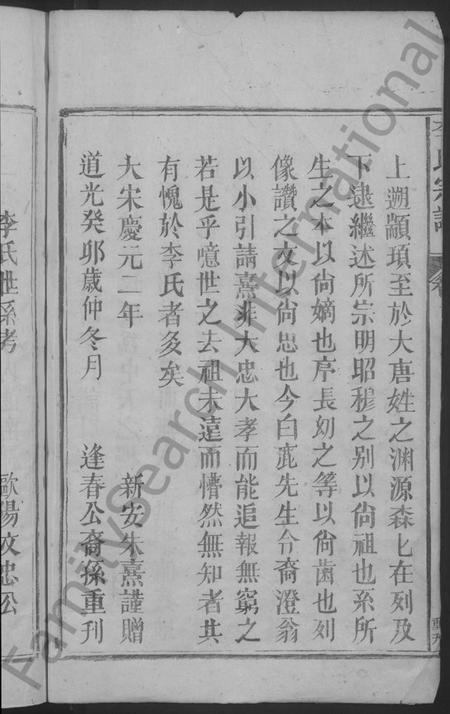 李氏宗譜
上遡顓頊至於大唐姓之渊源森匕在列及
下逮繼述所宗明昭穆之别以尙祖也系所
生之本以尙嫡也序長幼之等以尙齒也列
像讚之文以尙思也今白鹿先生介裔澄翁
以小引請熹非大忠大孝而能追報無窮之
若是乎噫世之去祖未遠而懵然無知者其
有愧於李氏者多矣
大宋慶元二年 新安朱熹謹贈
道光癸卯歲仲冬月 逢春公裔孫重刊
李氏世系考
歐陽文忠公
FamilySearch International